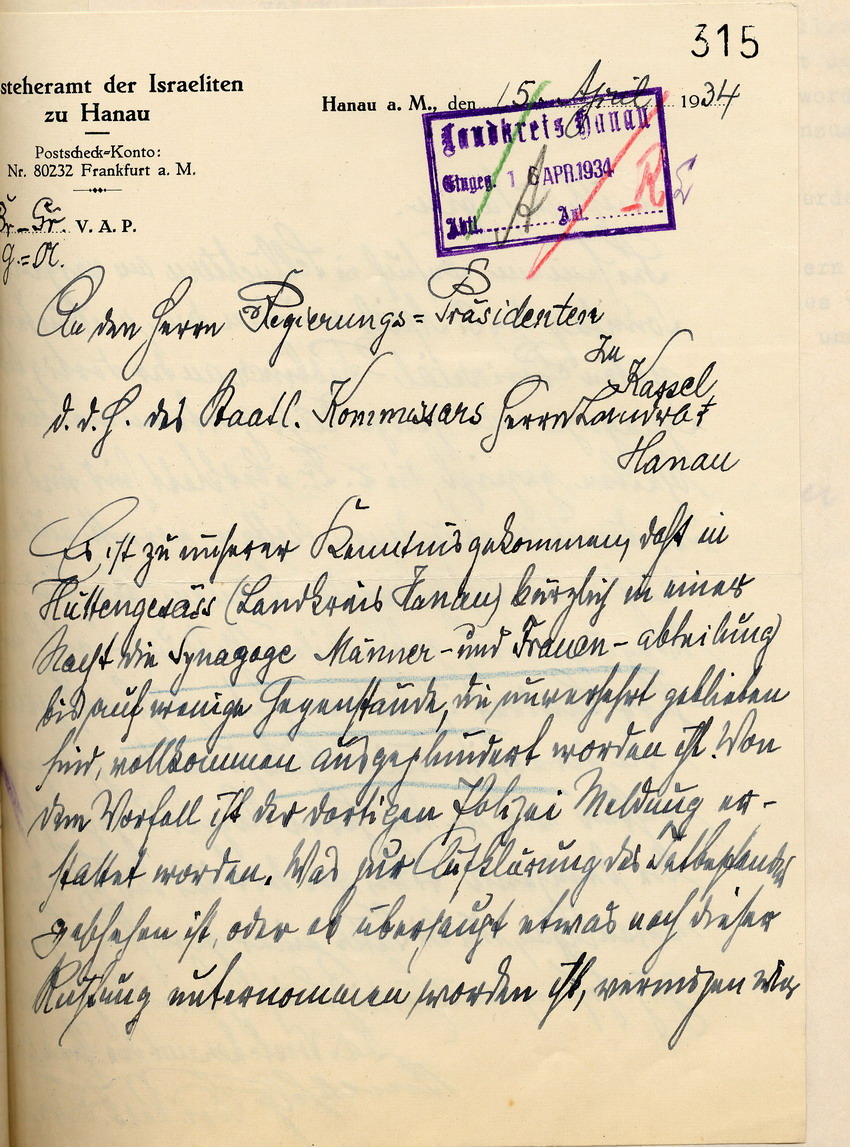 315
steheramt der Israeliten
zu Hanau
Postscheck-Konto:
Nr. 80232 Frankfurt a. M.
Hanau a. M., den 15. April 1934
Landkreis Hanau
Eingeg. 16 APR. 1934
Abtl. A Anl. R
Br.-Gr. V. A. P.
An den Herrn Regierungs-Präsidenten
zu Kassel
d. d. H. des Staatl. Kommissars Herrn Landrat
Hanau
Es ist zu unserer Kenntnis gekommen, daß in
Hüttengesäss (Landkreis Hanau) kürzlich in einer
Nacht die Synagoge Männer- und Frauen-abteilung
bis auf wenige Gegenstände, die unversehrt geblieben
sind, vollkommen ausgeplündert worden ist. Von
dem Vorfall ist der dortigen Polizei Meldung er-
stattet worden. Was zur Aufklärung des Tatbestandes
geschehen ist, oder ob überhaupt etwas nach dieser
Richtung unternommen worden ist, vermögen wir